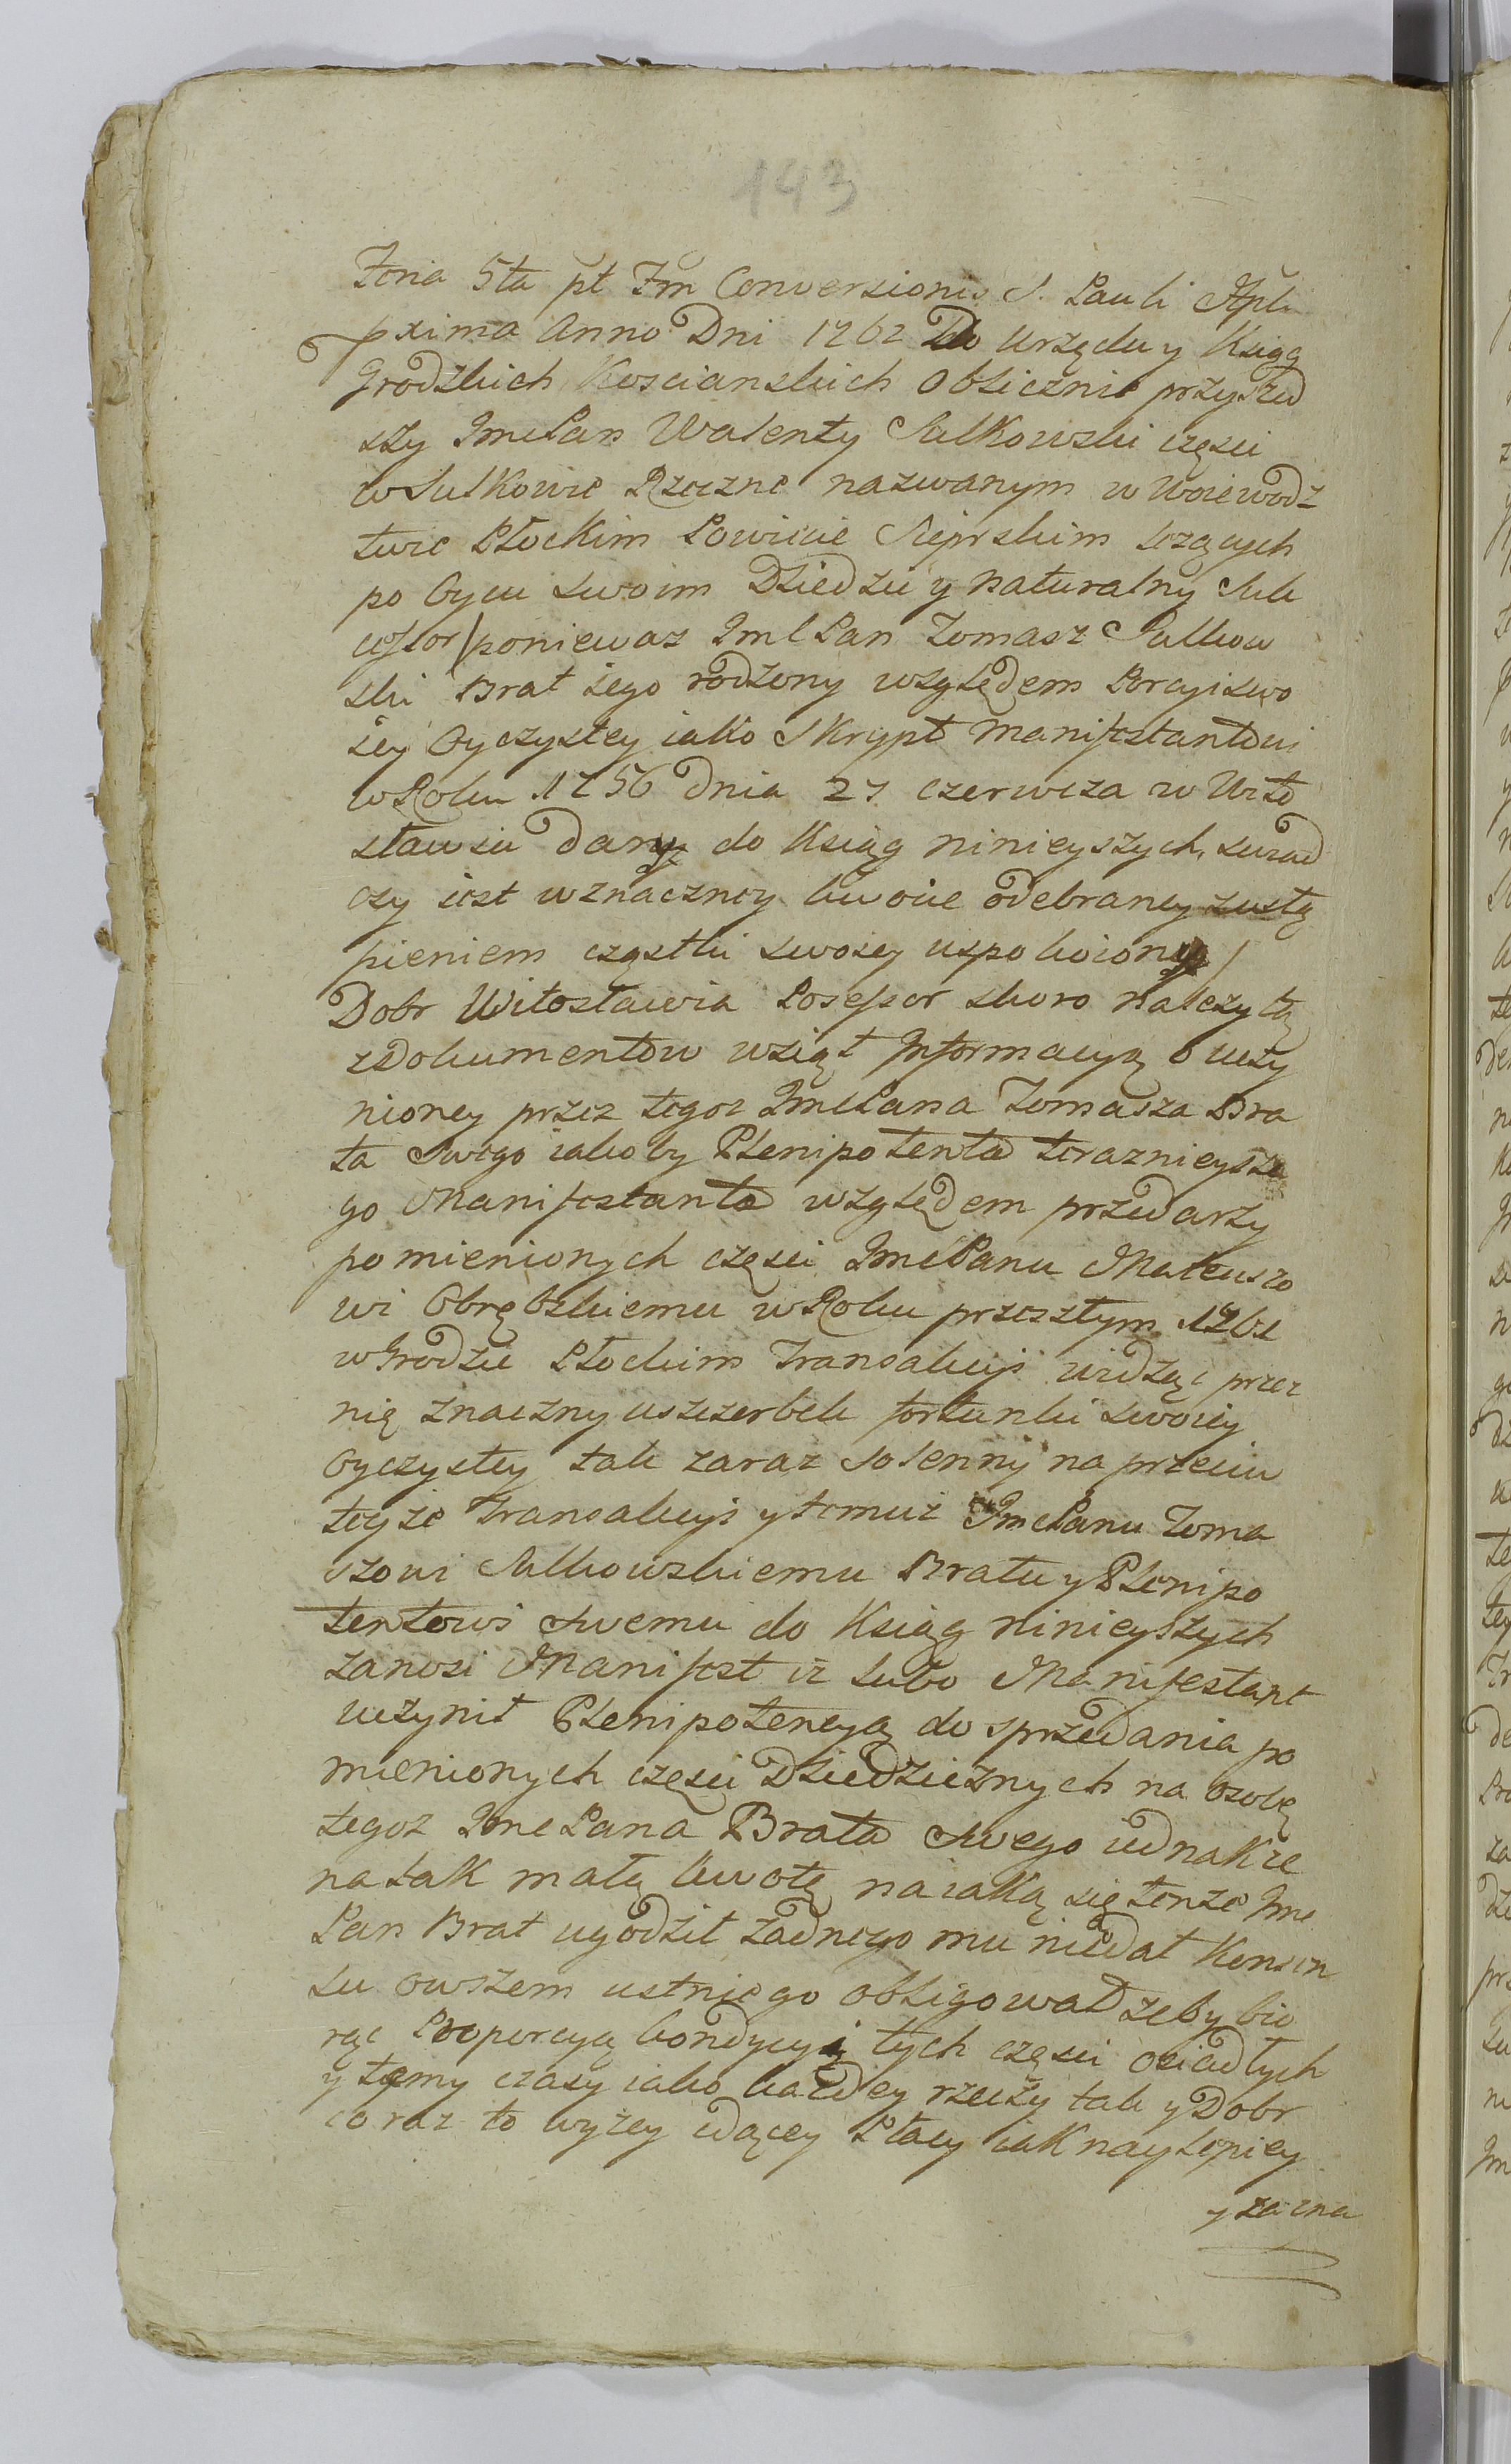 143
Feria 5ta pt Fm Conversionis S. Pauli Apli
pxima Anno Dni 1762 Do Urzędu y Ksiąg
Grodzkich Kosciańskich Oblicznie przyszed
szy ImcPan Walenty Sulkowski części
w Sulkowie Rzeczne nazwanym w Woiewodz
twie Płockim Powiecie Sieprskim leżących
po Oycu swoim Dziedzic y naturalny Suk
cessor/ ponieważ ImcPan Tomasz Sulkow
ski Brat iego rodzony względem Porcyi swo
iey Oyczystey iako Skrypt Manifestantowi
w Roku 1756 Dnia 27 czerwca w Wito
sławiu dany do Ksiąg ninieyszych świad
czy iest w znaczney kwocie odebraney z ustą
pieniem cząstki swoiey uspokoiony/
Dobr Witosławia Posessor skoro należytą
z Dokumentow wziął Informacyą o uczy
nioney przez tegoż ImcPana Tomasza Bra
ta Swego iakoby Plenipotenta teraznieysze
go Manifestanta względem przedarzy
pomienionych części ImcPanu Mateuszo
wi Obrębskiemu w Roku przeszłym 1761
w Grodzie Płockim Transakcyi widząc przez
nię znaczny uszczerbek fortunki swoiey
Oyczystey tak zaraz solenny naprzeciw
teyże Transakcyi y temuż ImcPanu Toma
szowi Sulkowskiemu Bratu y Plenipo
tentowi Swemu do Ksiąg ninieyszych
zanosi Manifest iż lubo Manifestant
uczynił Plenipotencyą do sprzedania po
mienionych części Dziedzicznych na osobę
tegoż ImcPana Brata Swego iednakże
na tak małą kwotę na iaką się tenże Imc
Pan Brat ugodził żadnego mu niedał Konsen
su owszem ustnie go obligował żeby bio
rąc Proporcyą kondycyi tych części osiadłych
y temy czasy iako każdey rzeczy tak y Dobr
coraz to wyżey idącey Płacy iak naylepiey
y za zna